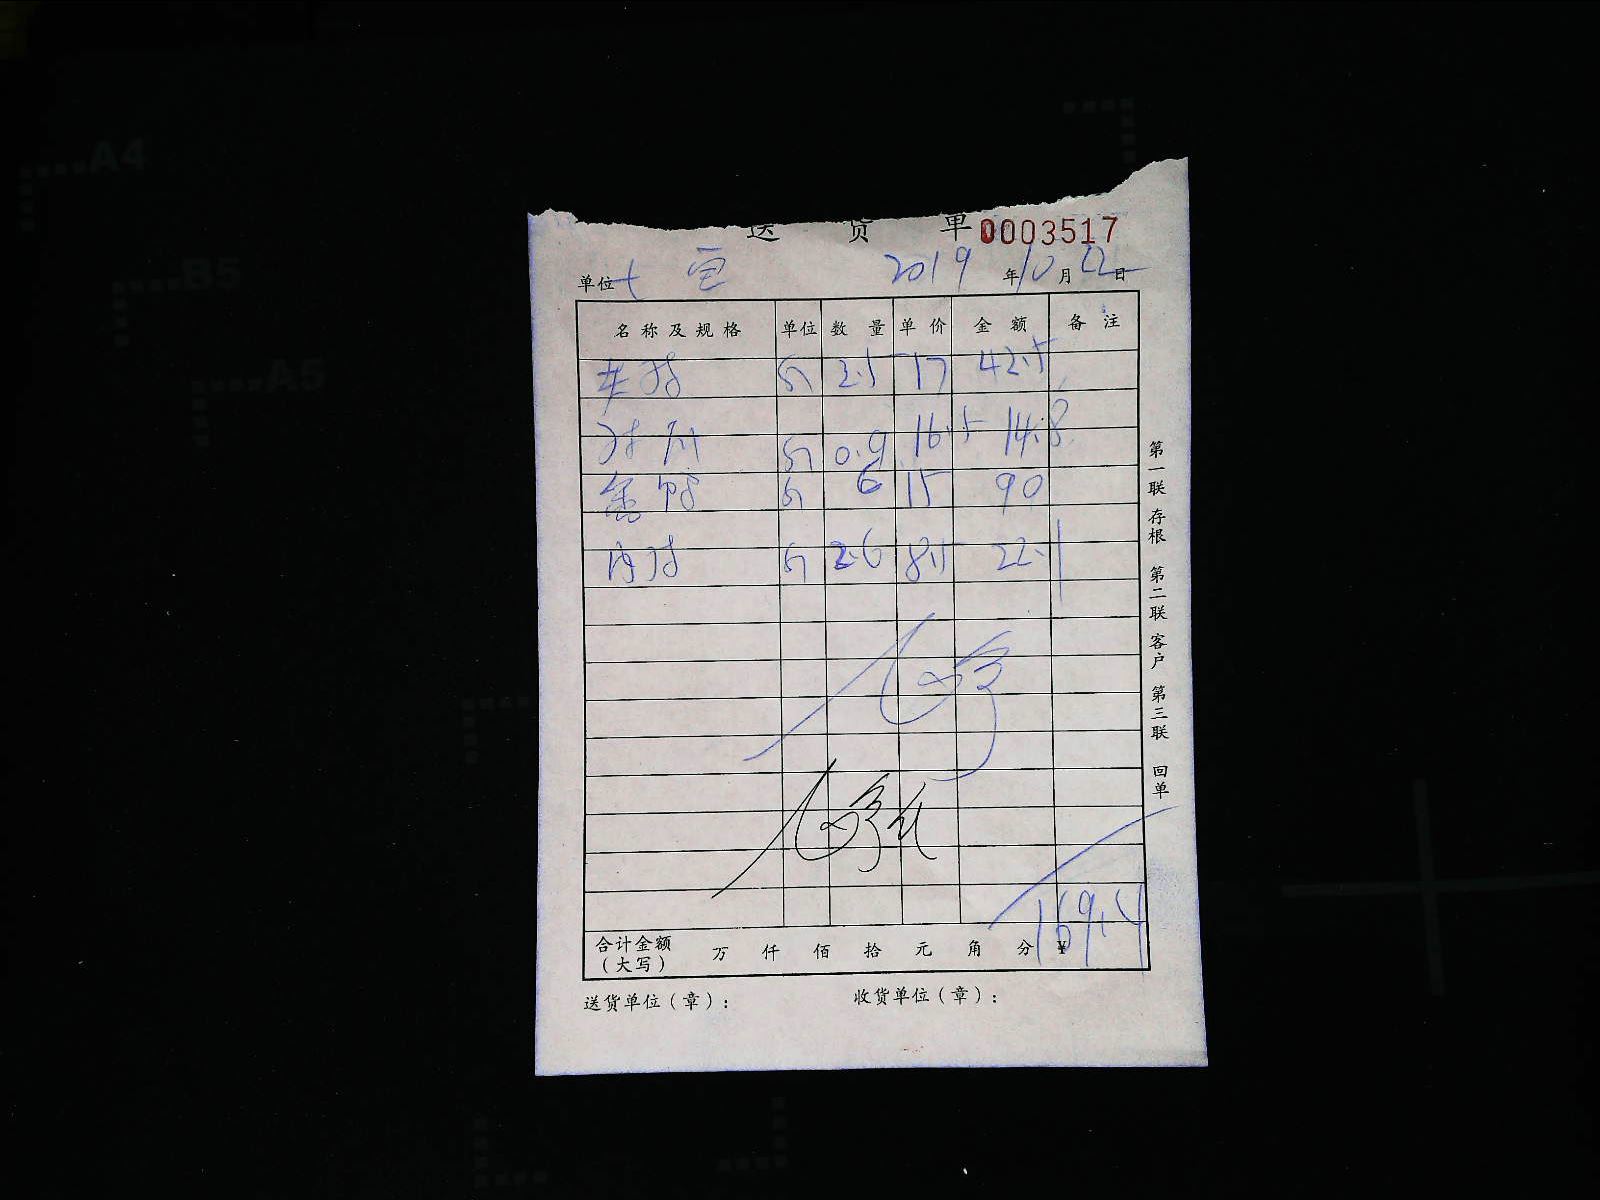 送 货 单 0003517
单位 2019 年 10 月 22 日
名称及规格 单位 数量 单价 金额 备注
斤 2.5 17 42.5
斤 0.9 16.5 14.8
斤 6 15 90
斤 2.6 8.5 22.1
169.4
合计金额（大写） 万 仟 佰 拾 元 角 分 ¥
送货单位（章）： 收货单位（章）：
第一联 存根 第二联 客户 第三联 回单
A4
B5
A5